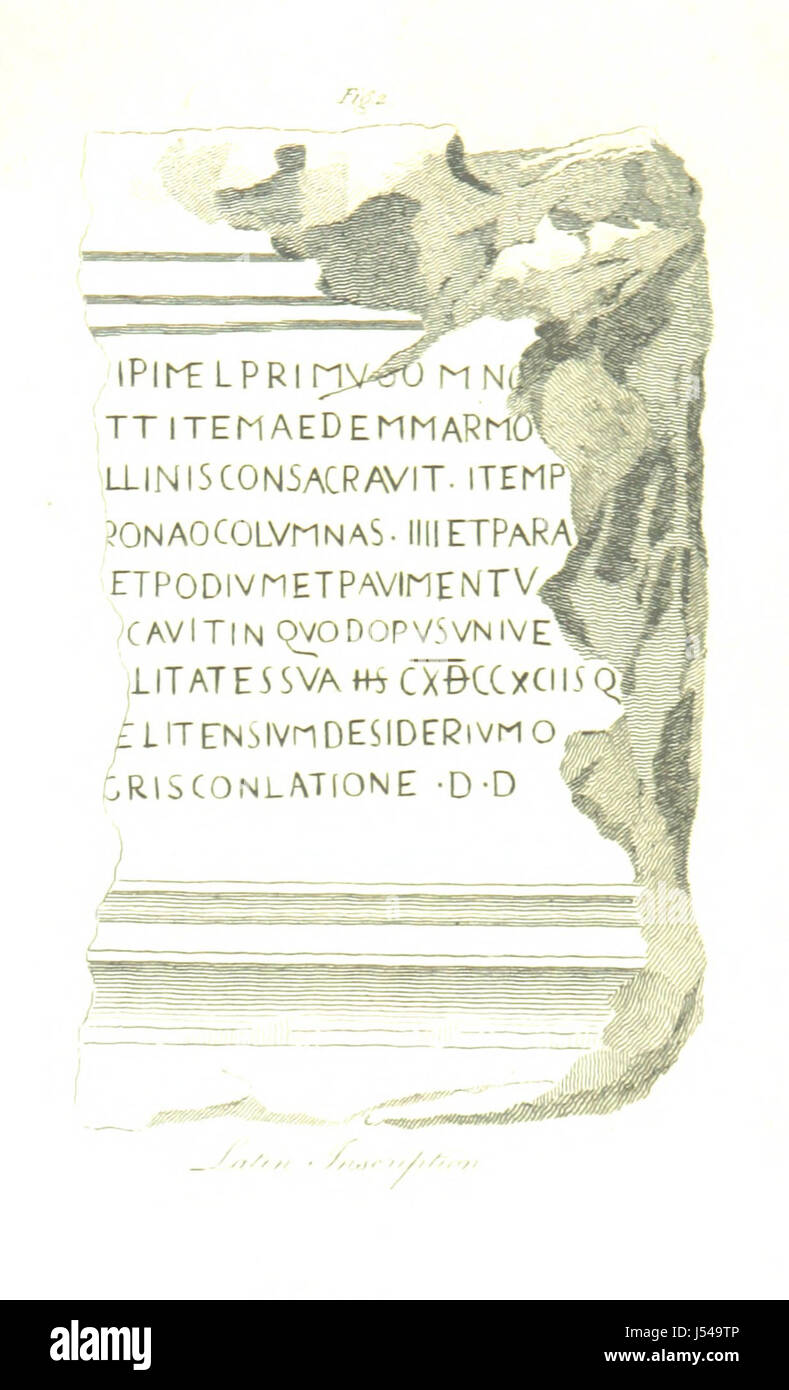 Fig 2
IPIMELPRIMVSOMNO
TTITEMAEDEMMARMO
LLINISCONSACRAVIT. ITEMP
RONAOCOLVMNAS. IIIIETPARA
ETPODIVMETPAVIMENTV
CAVITIN QVODOPVSVNIVE
LITATESSVA HS CXDCCXCIISQ
ELITENSIVMDESIDERIVMO
GRISCONLATIONE ·D·D
Latin Inscription
a alamy stock photo
J549TP
www.alamy.com